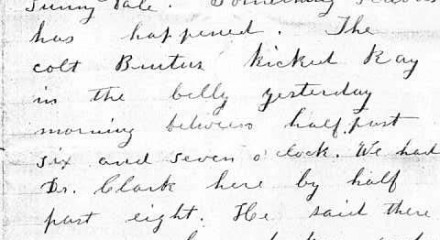 Sunny Vale. Something
has happened. The
colt Brutus kicked Ray
in the belly yesterday
morning between half past
six and seven o'clock. We had
Dr. Clark here by half
past eight. He said there